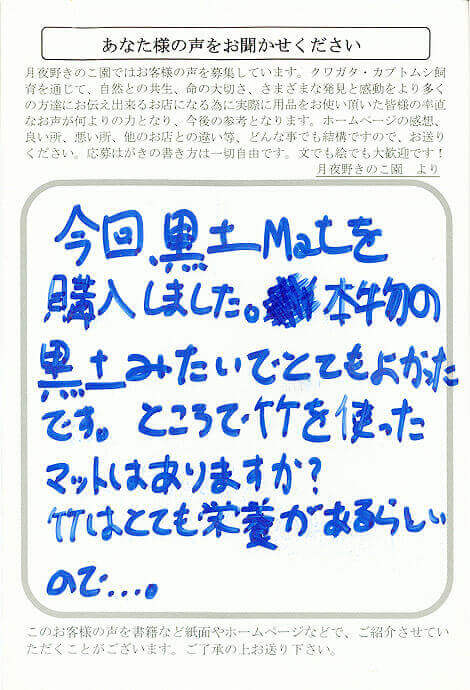 あなた様の声をお聞かせください
月夜野きのこ園ではお客様の声を募集しています。クワガタ・カブトムシ飼
育を通じて、自然との共生、命の大切さ、さまざまな発見と感動をより多く
の方達にお伝え出来るお店になる為に実際に用品をお使い頂いた皆様の率直
なお声が何よりの力となり、今後の参考となります。ホームページの感想、
良い所、悪い所、他のお店との違い等、どんな事でも結構ですので、お送り
ください。応募はがきの書き方は一切自由です。文でも絵でも大歓迎です！
月夜野きのこ園 より
今回、黒土Matを
購入しました。本物の
黒土みたいでとてもよかった
です。ところで竹を使った
マットはありますか？
竹はとても栄養があるらしい
ので…。
このお客様の声を書籍など紙面やホームページなどで、ご紹介させてい
ただくことがございます。ご了承の上お送り下さい。